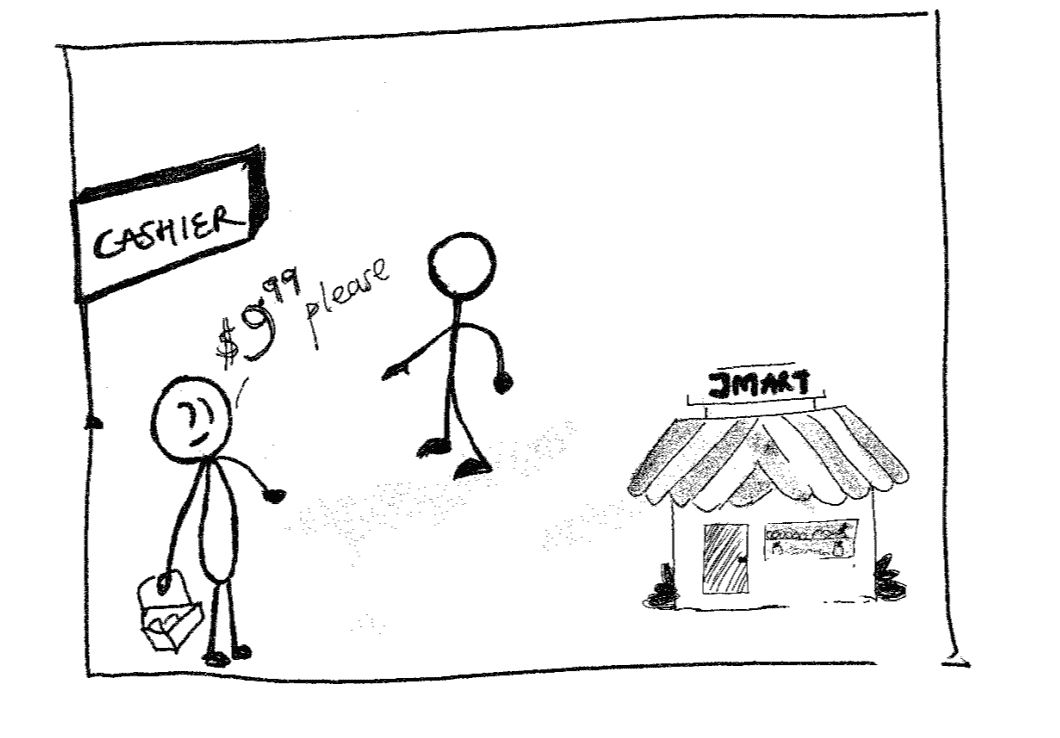 CASHIER
$9.99 please
JMART